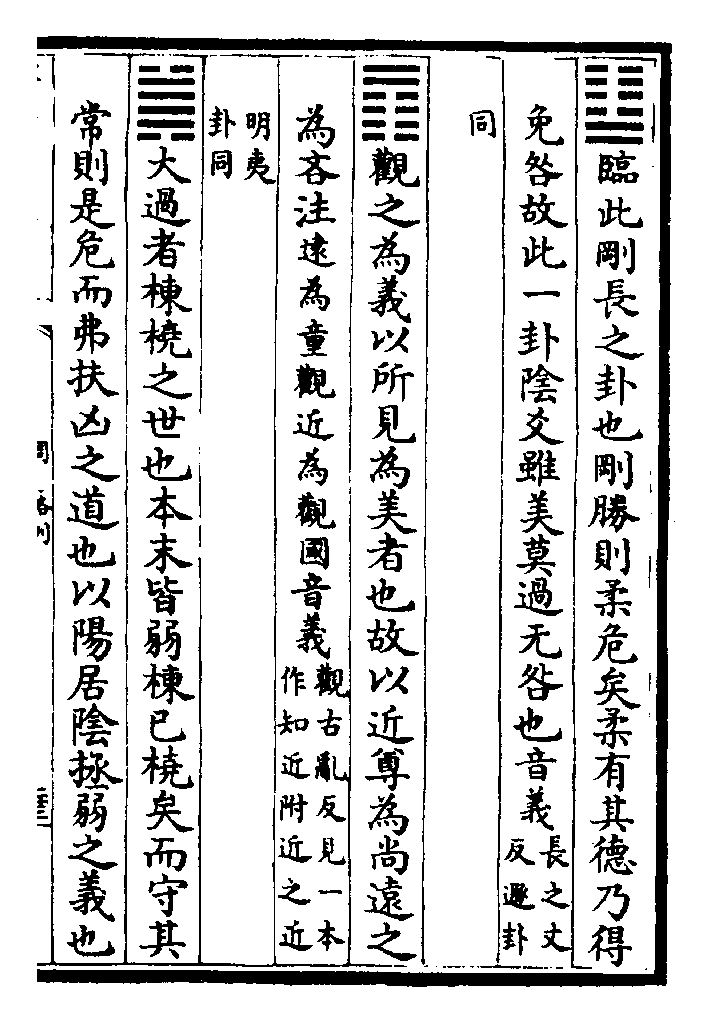 ䷒臨此剛長之卦也剛勝則柔危矣柔有其德乃得
免咎故此一卦陰爻雖美莫過无咎也音義長之丈
反遯卦
同
䷓觀之為義以所見為美者也故以近尊為尚遠之
為吝注逺為童觀近為觀國音義觀古亂反見一本
作知近附近之近
明夷
卦同
䷛大過者棟橈之世也本末皆弱棟已橈矣而守其
常則是危而弗扶凶之道也以陽居陰拯弱之義也